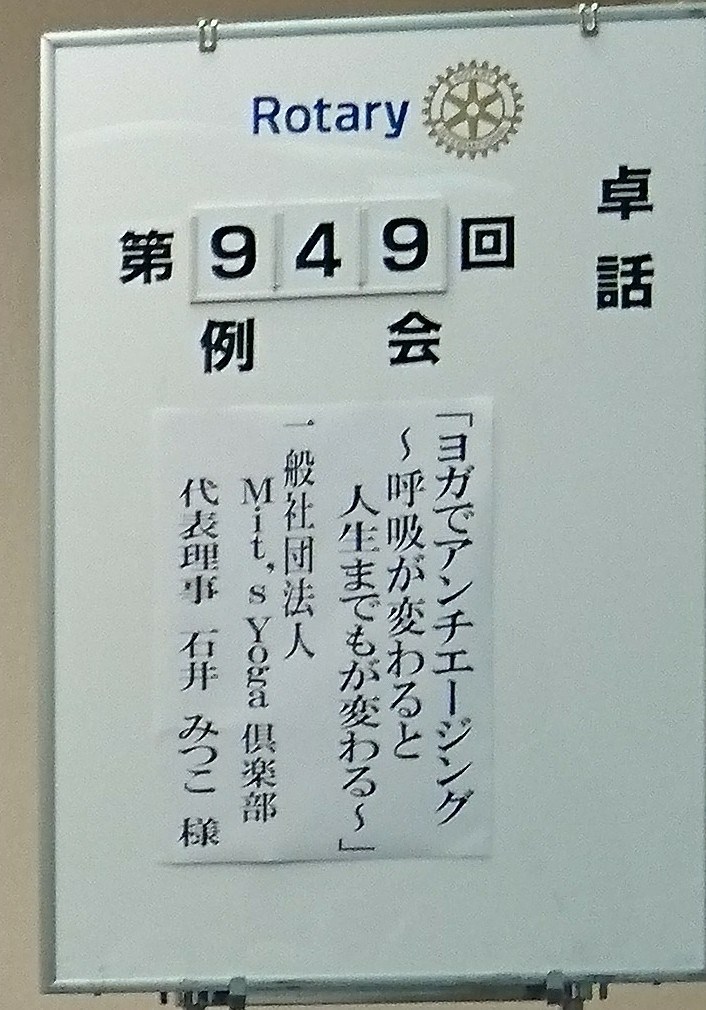 Rotary
卓話
第949回
例会
「ヨガでアンチエージング
～呼吸が変わると
人生までもが変わる～」
一般社団法人
Mit,s Yoga 倶楽部
代表理事 石井 みつこ 様